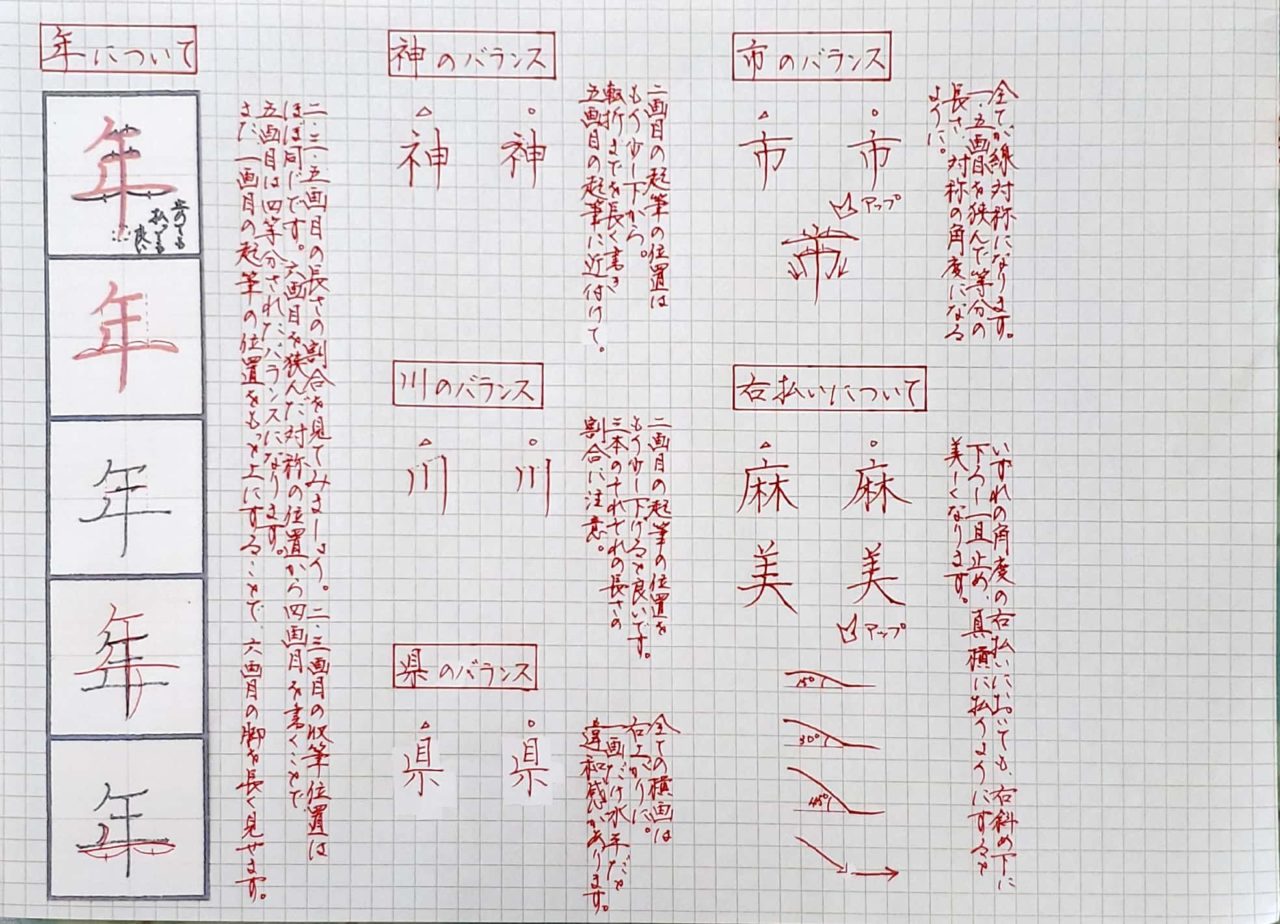 年について
年
止めても
払っても
良い
年
年
年
年
二・三・五画目の長さの割合を見てみましょう。二・三画目の収筆位置は
ほぼ同じです。六画目を狭んだ対称の位置から四画目を書くことで
五画目は四等分されたバランスになります。
また、一画目の起筆の位置をもっと上にすることで、六画目の脚を長く見せます。
神のバランス
△ ○
神 神
二画目の起筆の位置は
もう少し下から。
転折までを長く書き
五画目の起筆に近付けて。
川のバランス
△ ○
川 川
二画目の起筆の位置を
もう少し下げると良いです。
三本のそれぞれの長さの
割合に注意。
県のバランス
△ ○
県 県
全ての横画は
右上がりに。
一画だけ水平だと
違和感があります。
市のバランス
△ ○
市 市
アップ
市
全てが線対称になります。
一・五画目を狭んで等分の
長さ、対称の角度になる
ように。
右払いについて
△ ○
麻 麻
美 美
アップ
15°
30°
45°
いずれの角度の右払いにおいても、右斜め下に
下ろし一旦止め、真横に払うようにすると
美しくなります。